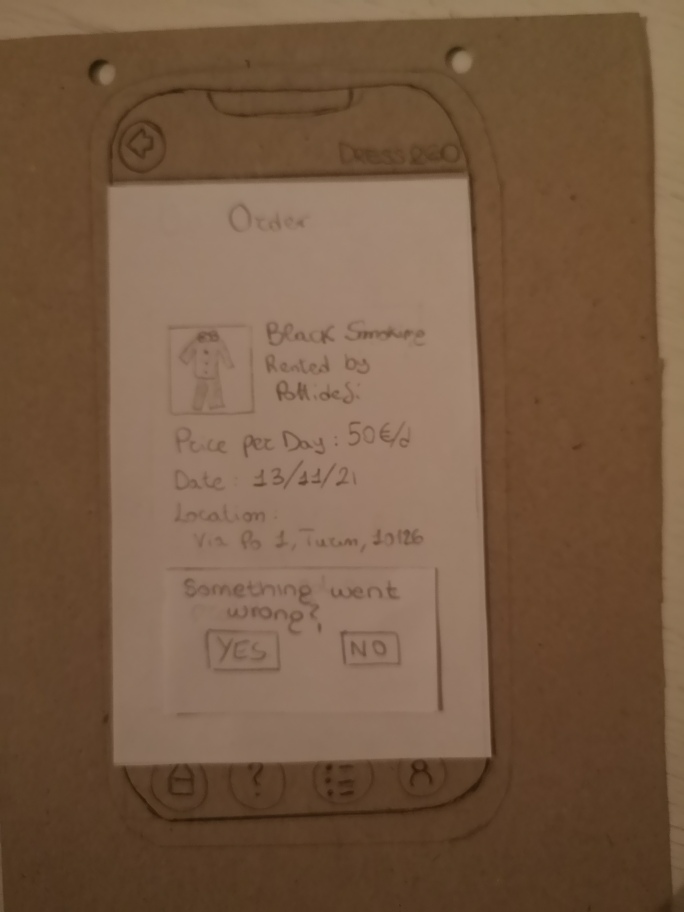 DRESS2GO
Order
Black Smoking
Rented by
Price per Day: 50€/d
Date: 13/11/21
Location:
Via Po 1, Turin, 10126
Something went
wrong?
YES
NO
?